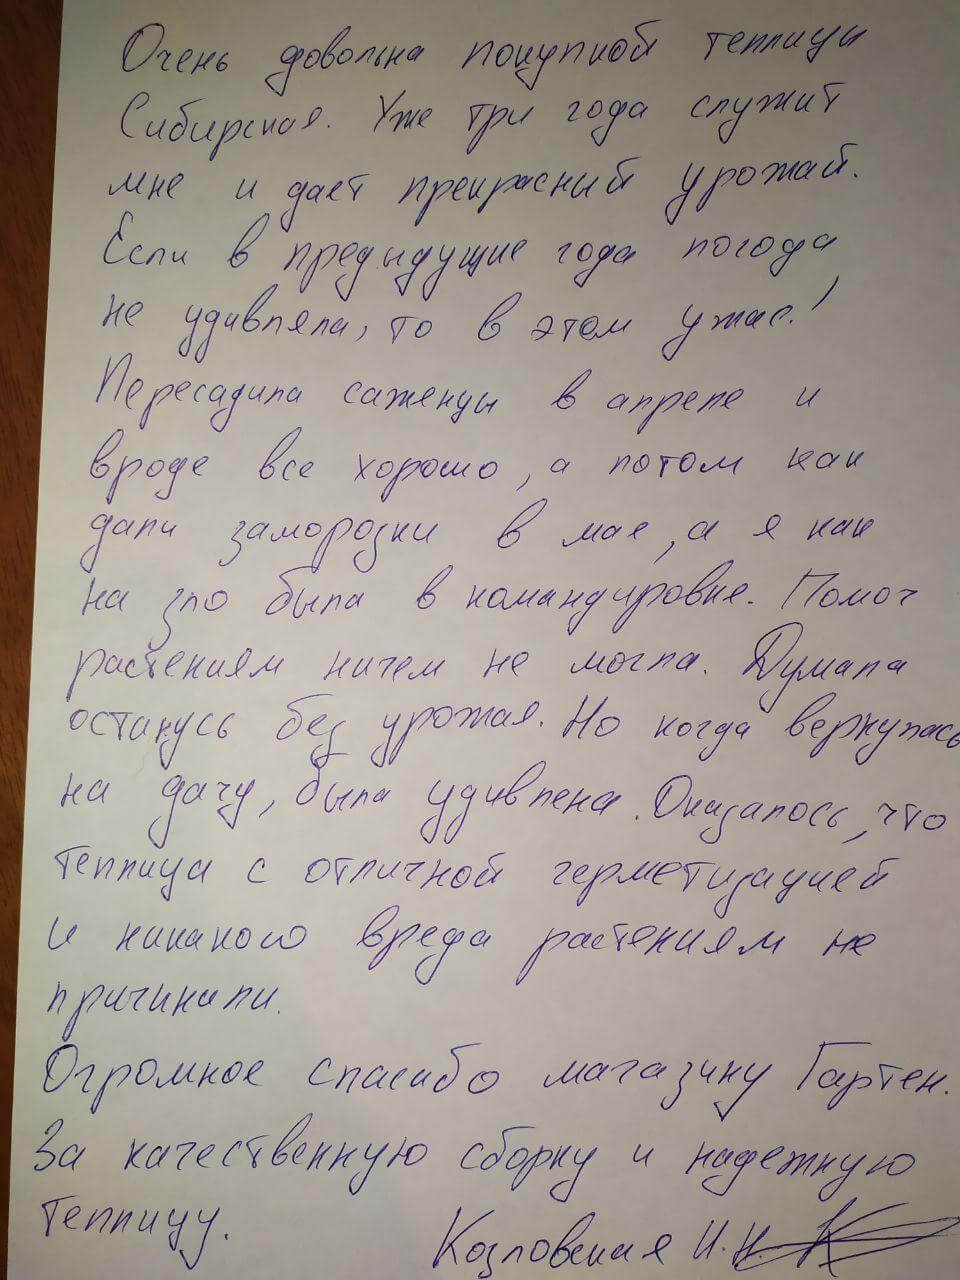 Очень довольна покупкой теплицы
Сибирская. Уже три года служит
мне и дает прекрасный урожай.
Если в предыдущие года погода
не удивляла, то в этом ужас!
Пересадила саженцы в апреле и
вроде все хорошо, а потом как
дали заморозки в мае, а я как
на зло была в командировке. Помоч
растениям ничем не могла. Думала
останусь без урожая. Но когда вернулась
на дачу, была удивлена. Оказалось, что
теплица с отличной герметизацией
и никакого вреда растениям не
причинили.
Огромное спасибо магазину Гартен.
За качественную сборку и надежную
теплицу.
Козловская И.Н.